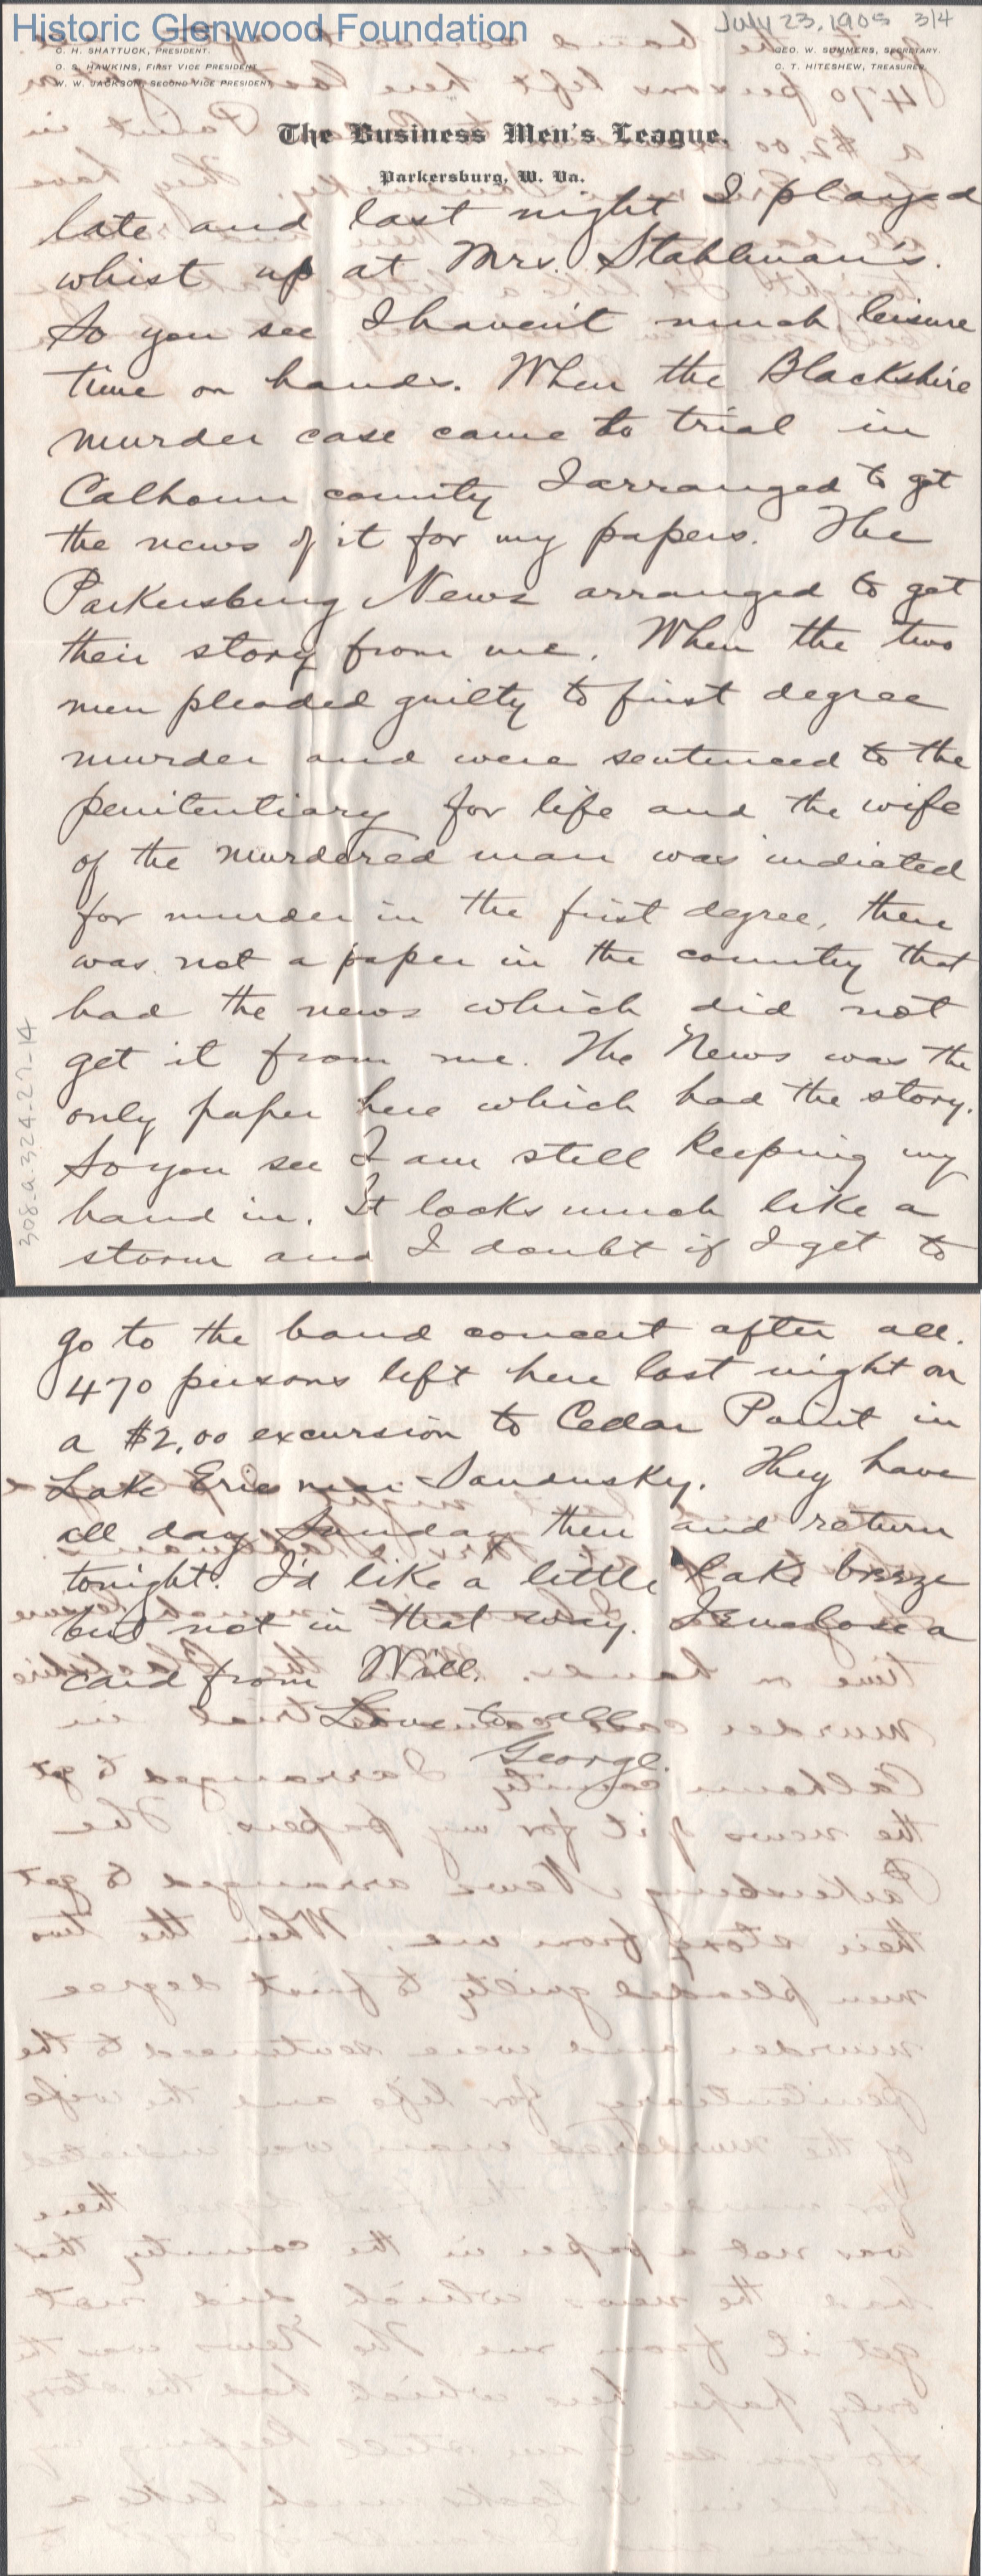 Historic Glenwood Foundation
July 23, 1905 3/4
C. H. SHATTUCK, PRESIDENT.
O. S. HAWKINS, FIRST VICE PRESIDENT
W. W. JACKSON, SECOND VICE PRESIDENT
GEO. W. SUMMERS, SECRETARY.
C. T. HITESHEW, TREASURER.
The Business Men's League.
Parkersburg, W. Va.
late and last night I played
whist up at Mrs. Stahlman's.
So you see I haven't much leisure
time on hands. When the Blackshire
murder case came to trial in
Calhoun county I arranged to get
the news of it for my papers. The
Parkersburg News arranged to get
their story from me. When the two
men pleaded guilty to first degree
murder and were sentenced to the
penitentiary for life and the wife
of the murdered man was indicted
for murder in the first degree, there
was not a paper in the country that
had the news which did not
get it from me. The News was the
only paper here which had the story.
So you see I am still keeping my
hand in. It looks much like a
storm and I doubt if I get to
308-a-324-27-14
go to the band concert after all.
470 persons left here last night on
a $2.00 excursion to Cedar Point in
Lake Erie near Sandusky. They have
all day Sunday there and return
tonight. I'd like a little lake breeze
but not in that way. I enclose a
card from Will.
Love to all
George.